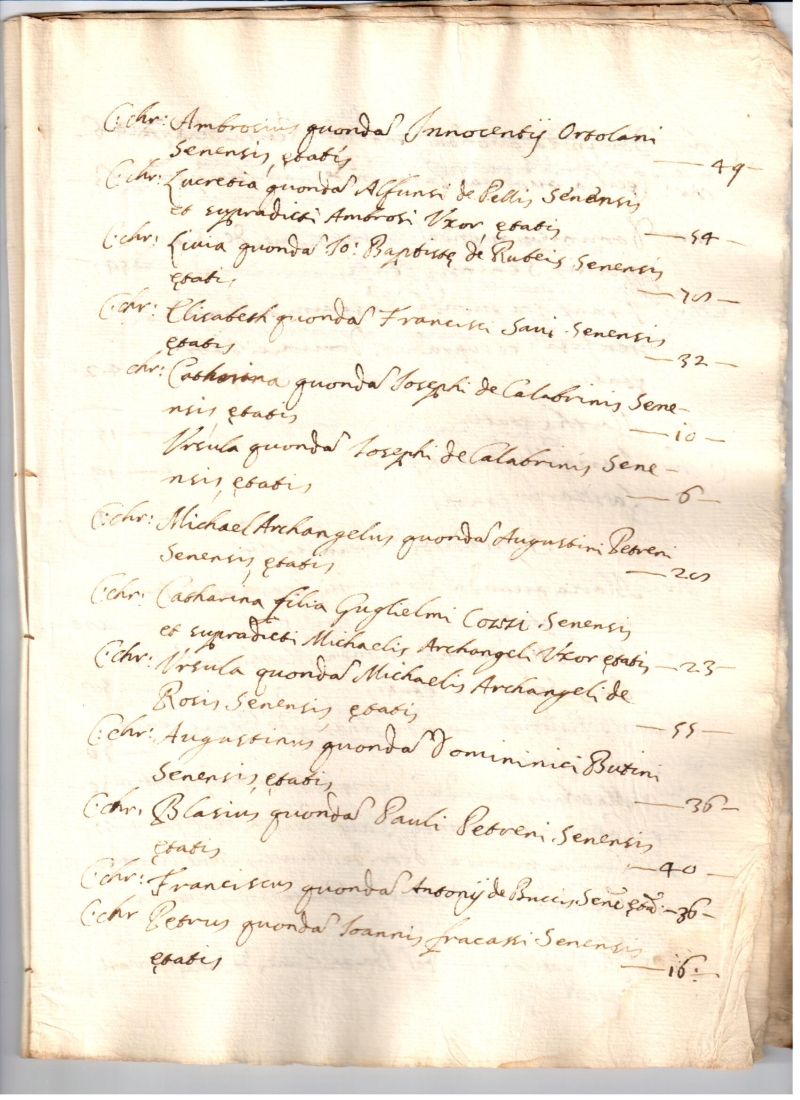 C: chr: Ambrosius quonda᷉ Innocentij Ortolani
Senensis, ętatis — 49 —
C: chr: Lucretia quonda᷉ Alfunsi de Pellis Senensis
et supradicti Ambrosi Vxor, ętatis — 54 —
C: chr: Liuia quonda᷉ Io: Baptistę de Rubeis Senensis
ętatis — 70 —
C: chr: Elisabeth quonda᷉ Francisci Saui Senensis
ętatis — 32 —
chr: Catharina quonda᷉ Iosephi de Calabrinis Sene-
nsis ętatis — 10 —
Vrsula quonda᷉ Iosephi de Calabrinis Sene-
nsis, ętatis — 6 —
C: chr: Michael Archangelus quonda᷉ Augustini Petreni
Senensis, ętatis — 20
C: chr: Catharina filia Guglielmi Cozzi Senensis
et supradicti Michaelis Archangeli Vxor ętatis — 23 —
C: chr: Vrsula quonda᷉ Michaelis Archangeli de
Rosis Senensis, ętatis — 55 —
C: chr: Augustinus quonda᷉ Domininici Butini
Senensis, ętatis — 36 —
C: chr: Blasius quonda᷉ Pauli Petreni Senensis
ętatis — 40 —
C: chr: Franciscus quonda᷉ Antonij de Buccis, Sene᷉ ęta᷉: — 36 —
C: chr Petrus quonda᷉ Ioannis fracassi Senensis
ętatis — 16: —